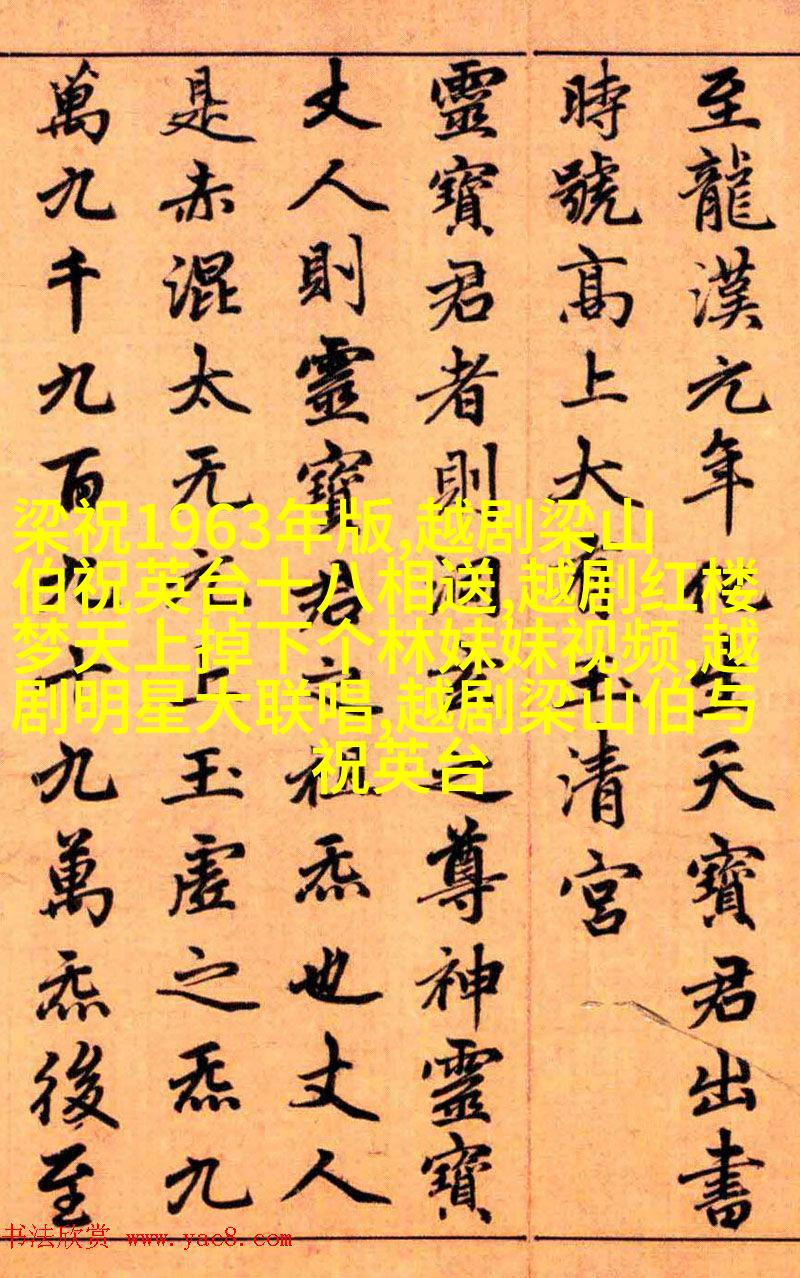 至龍漢元年化生天寶君出書
時號高上大有玉清宮
靈寶君者則洞玄之尊神靈寶
丈人則靈寶君之祖炁也丈人
是赤混太无元上玉虛之炁九
萬九千九百九十九萬炁後至
梁祝1963年版,越剧梁山
伯祝英台十八相送,越剧红楼
梦天上掉下个林妹妹视频,越
剧明星大联唱,越剧梁山伯与
祝英台
书法欣赏 www.yac8.com